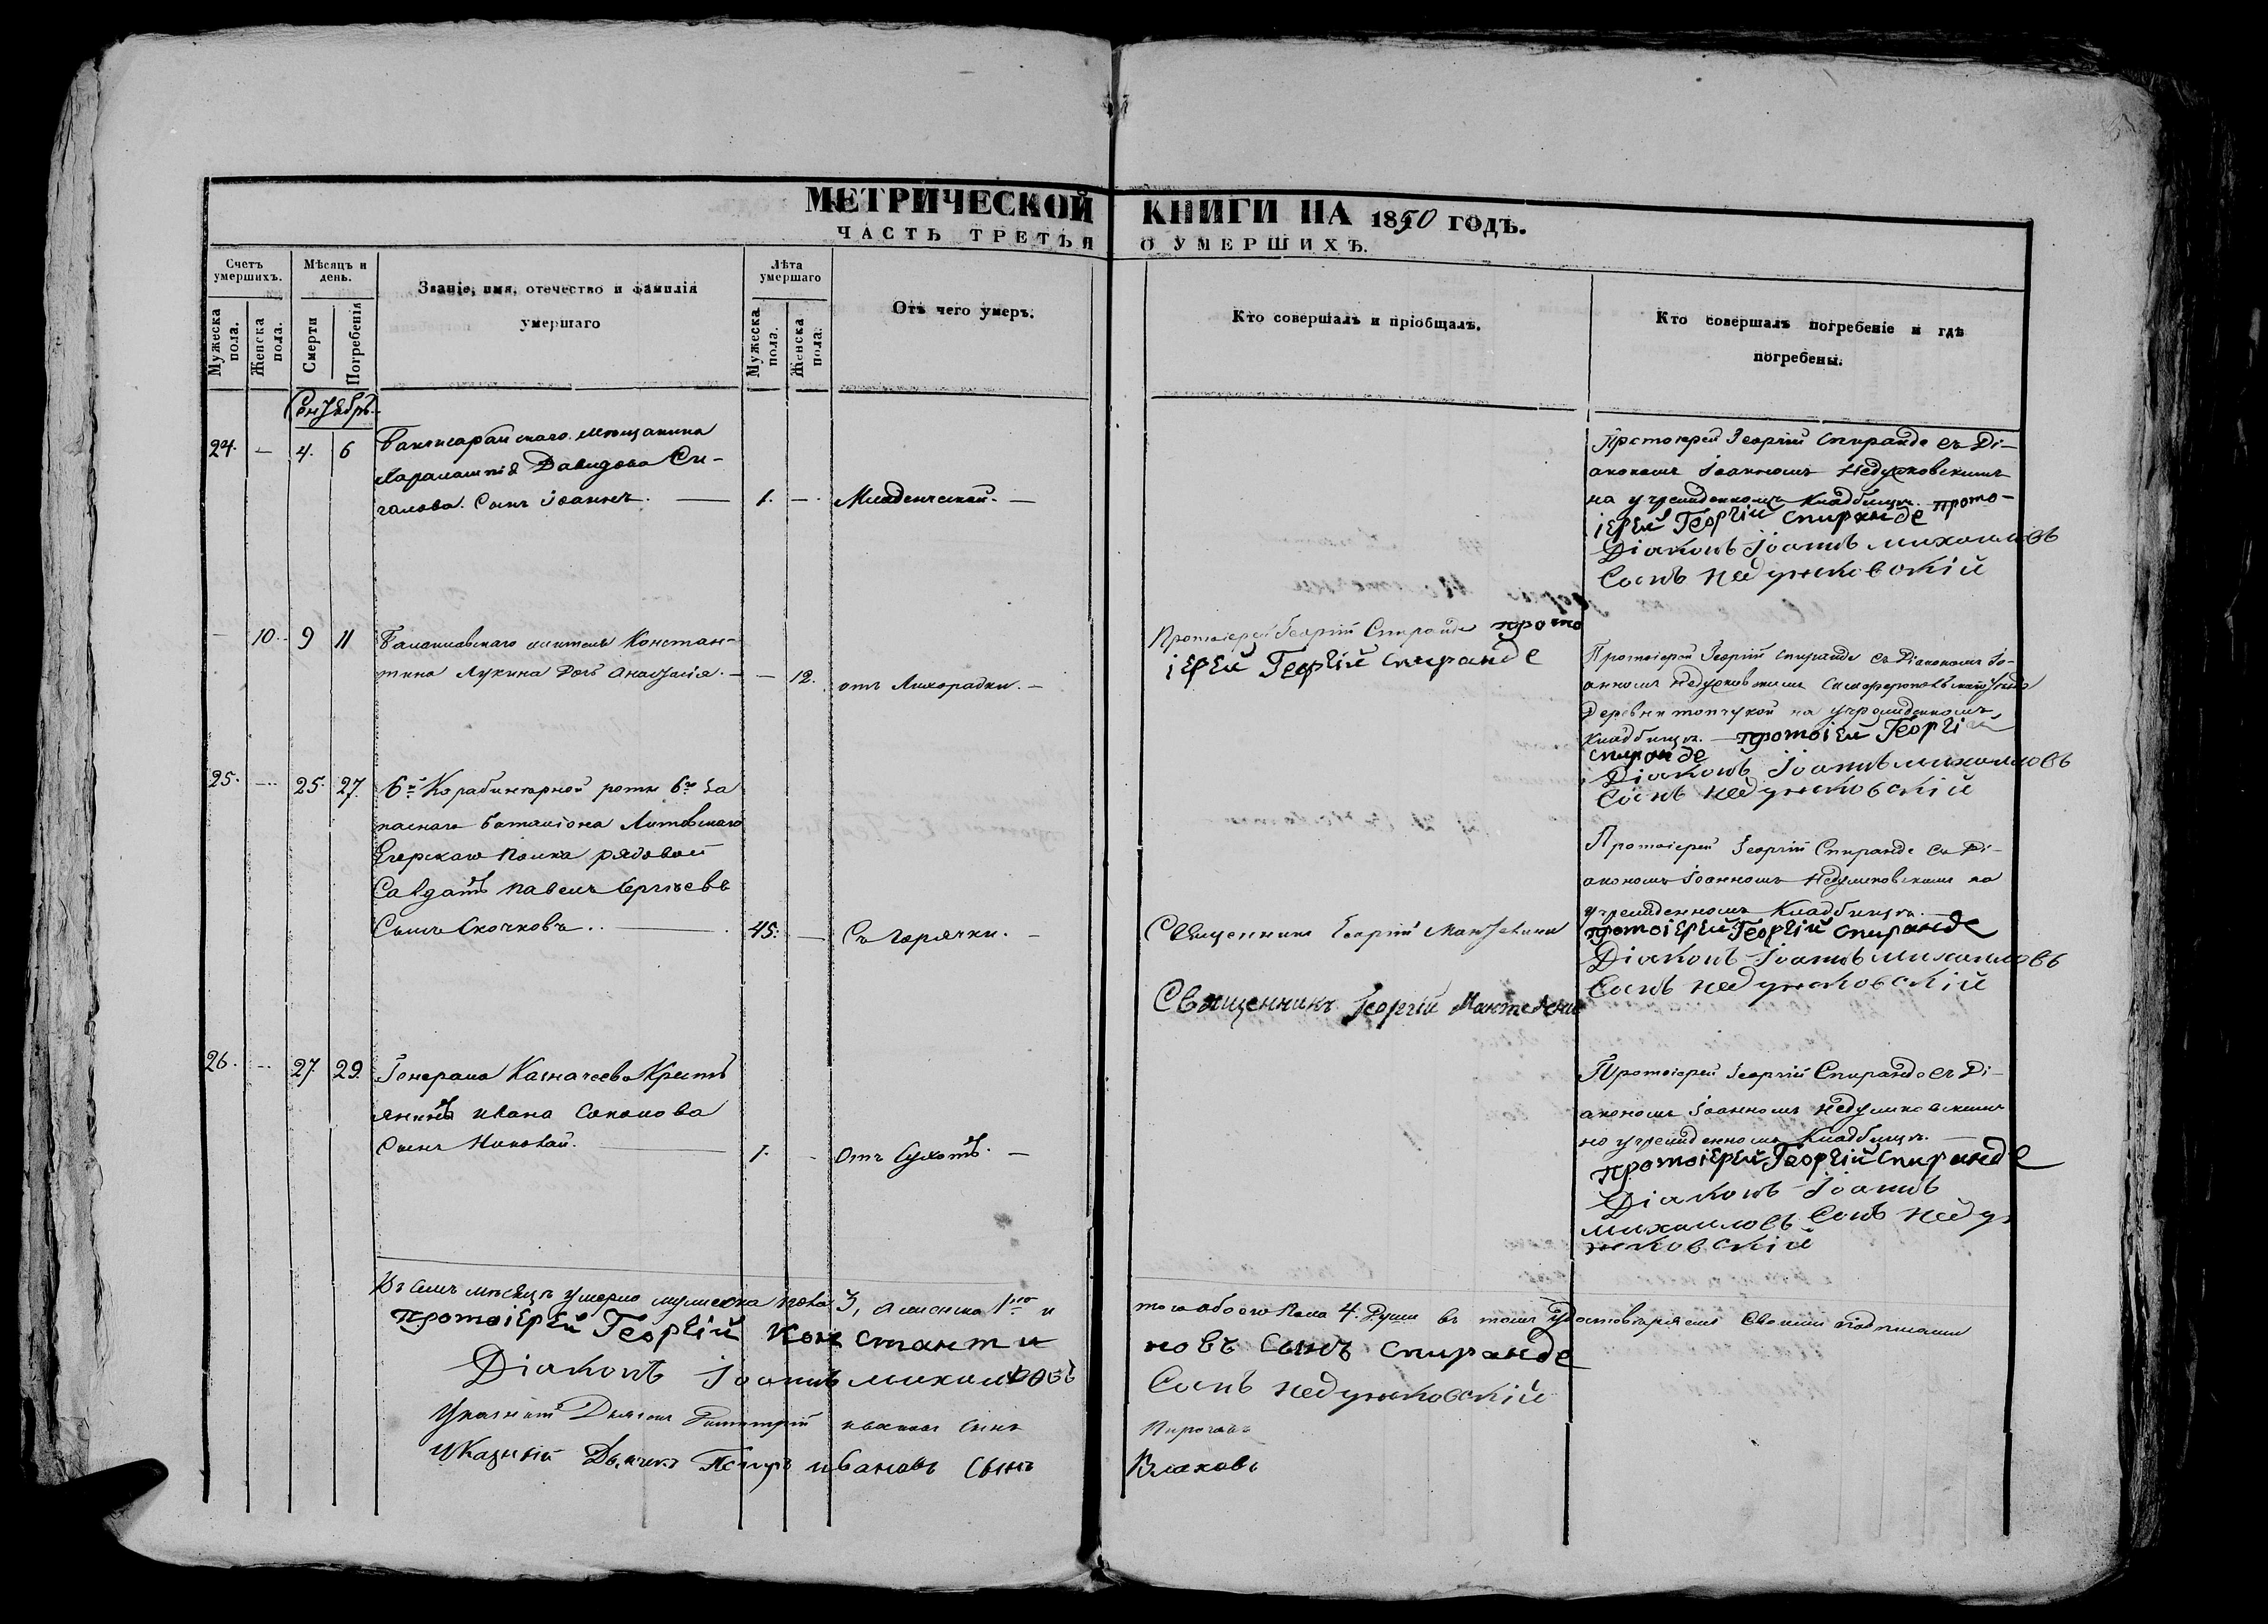 МЕТРИЧЕСКОЙ КНИГИ НА 1850 ГОДЪ.
ЧАСТЬ ТРЕТЬЯ О УМЕРШИХЪ.
Счетъ умершихъ.
Мѣсяцъ и день.
Званіе, имя, отечество и фамилія умершаго
Лѣта умершаго
Отъ чего умеръ.
Кто совершалъ и пріобщалъ.
Кто совершалъ погребеніе и гдѣ погребены.
Мужеска пола.
Женска пола.
Смерти
Погребенія
Мужеска пола.
Женска пола.
Сентябрь
24. — 4. 6
Бахчисарайскаго мѣщанина
Харалампія Давидова Си-
галова Сынъ Іоаннъ. — 1. — Младенческой. —
Протоіерей Георгій Спиранде съ Ді-
акономъ Іоанномъ Недужковскимъ
на учрежденномъ Кладбищѣ. прото-
іерей Георгій спиранде
Діаконъ Іоаннъ михаиловъ
Сынъ недужковскій
— 10. 9 11
Балаклавскаго жителя Констан-
тина Лукина Дочь Анастасія. — — 12. отъ Лихорадки. —
Протоіерей Георгій Спиранде прото
іерей Георгій спиранде
Протоіерей Георгій спиранде съ Діакономъ Іо-
анномъ Недужковскимъ Симферопольскаго уѣзда
Деревни топчукой на учрежденномъ
Кладбищѣ. — протоіей Георгі
спиранде
Діаконъ Іоаннъ михаиловъ
Сынъ недужковскій
25. — 25. 27.
6й Карабинерной роты 6го За
паснаго баталіона Литовскаго
Егерскаго Полка рядовой
Салдатъ Павелъ Сергѣевъ
Сынъ Скочковъ. — 45. — Съ Горячки. —
Священникъ Георгій Мантевичъ
Священникъ Георгій
Протоіерей Георгій Спиранде съ Ді-
акономъ Іоанномъ Недужковскимъ на
учрежденномъ Кладбищѣ. —
протоіерей Георгій спиранде
Діаконъ Іоаннъ михаиловъ
Сынъ недужковскій
26. — 27 29.
Генерала Казначеева Кресть
янинъ Ивана Соколова
Сынъ Николай. — 1. - Отъ Сухотъ. —
Протоіерей Георгій Спиранде съ Ді-
акономъ Іоанномъ Недужковскимъ
на учрежденномъ Кладбищѣ. —
протоіерей Георгій спиранде
Діаконъ Іоаннъ
михаиловъ Сынъ неду
жковскій
Въ семъ мѣсяцѣ умерло мужеска пола 3, а женска 1но и того обоего Пола 4. Души въ томъ Удостовѣряемъ Своими подписами
протоіерей Георгій Константи новъ Сынъ спиранде
Діаконъ Іоаннъ михаиловъ Сынъ недужковскій
Указный Дьячекъ Димитрій ивановъ сынъ
Указный Дьячекъ Петръ ивановъ Сынъ Влаховъ